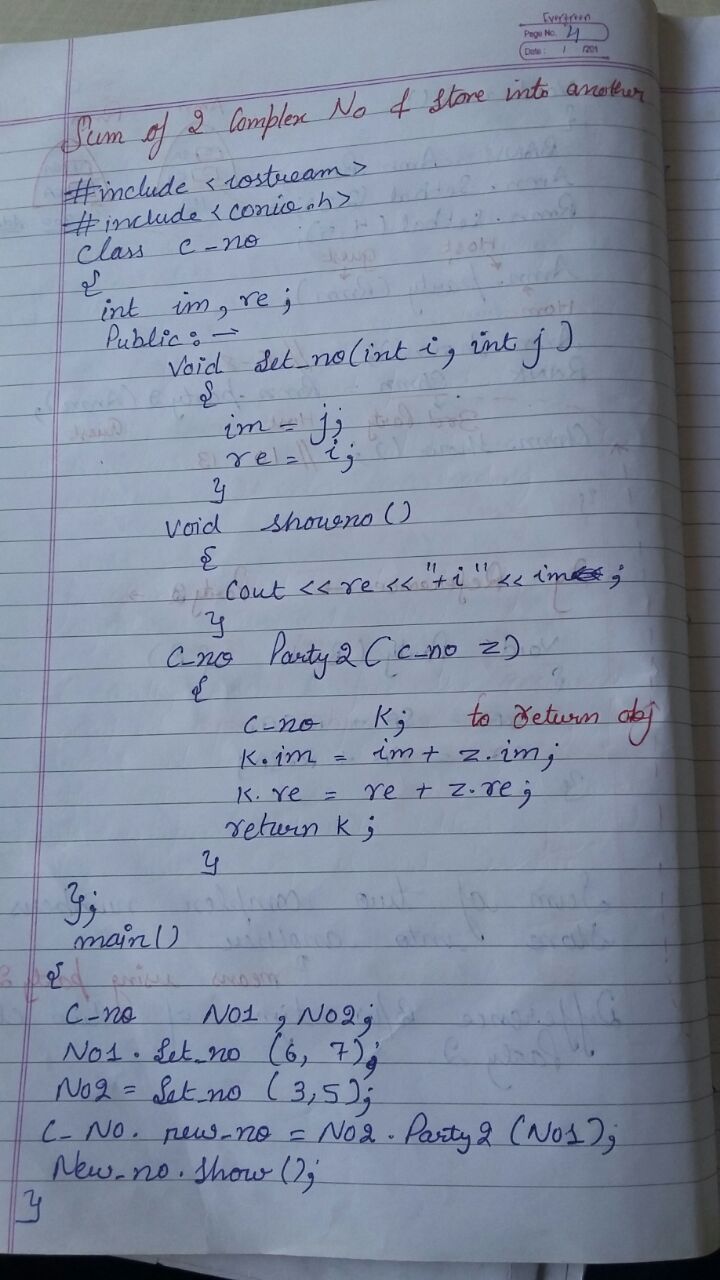 Evergreen
Page No. 4
Date: / /201
Sum of 2 Complex No & Store into another
#include <iostream>
#include <conio.h>
Class C_no
{
int im, re;
Public: —
Void Set_no(int i, int j)
{
im = j;
re = i;
}
Void showno()
{
Cout << re << "+i" << im ;
}
C_no Party2 (C_no z)
{
C_no K; to return obj
K.im = im + z.im;
K.re = re + z.re;
return K;
}
};
main()
{
C_no NO1, NO2;
NO1. Set_no (6, 7);
NO2 = Set_no (3,5);
C_No. new_no = NO2. Party2 (NO1);
New_no. Show();
}